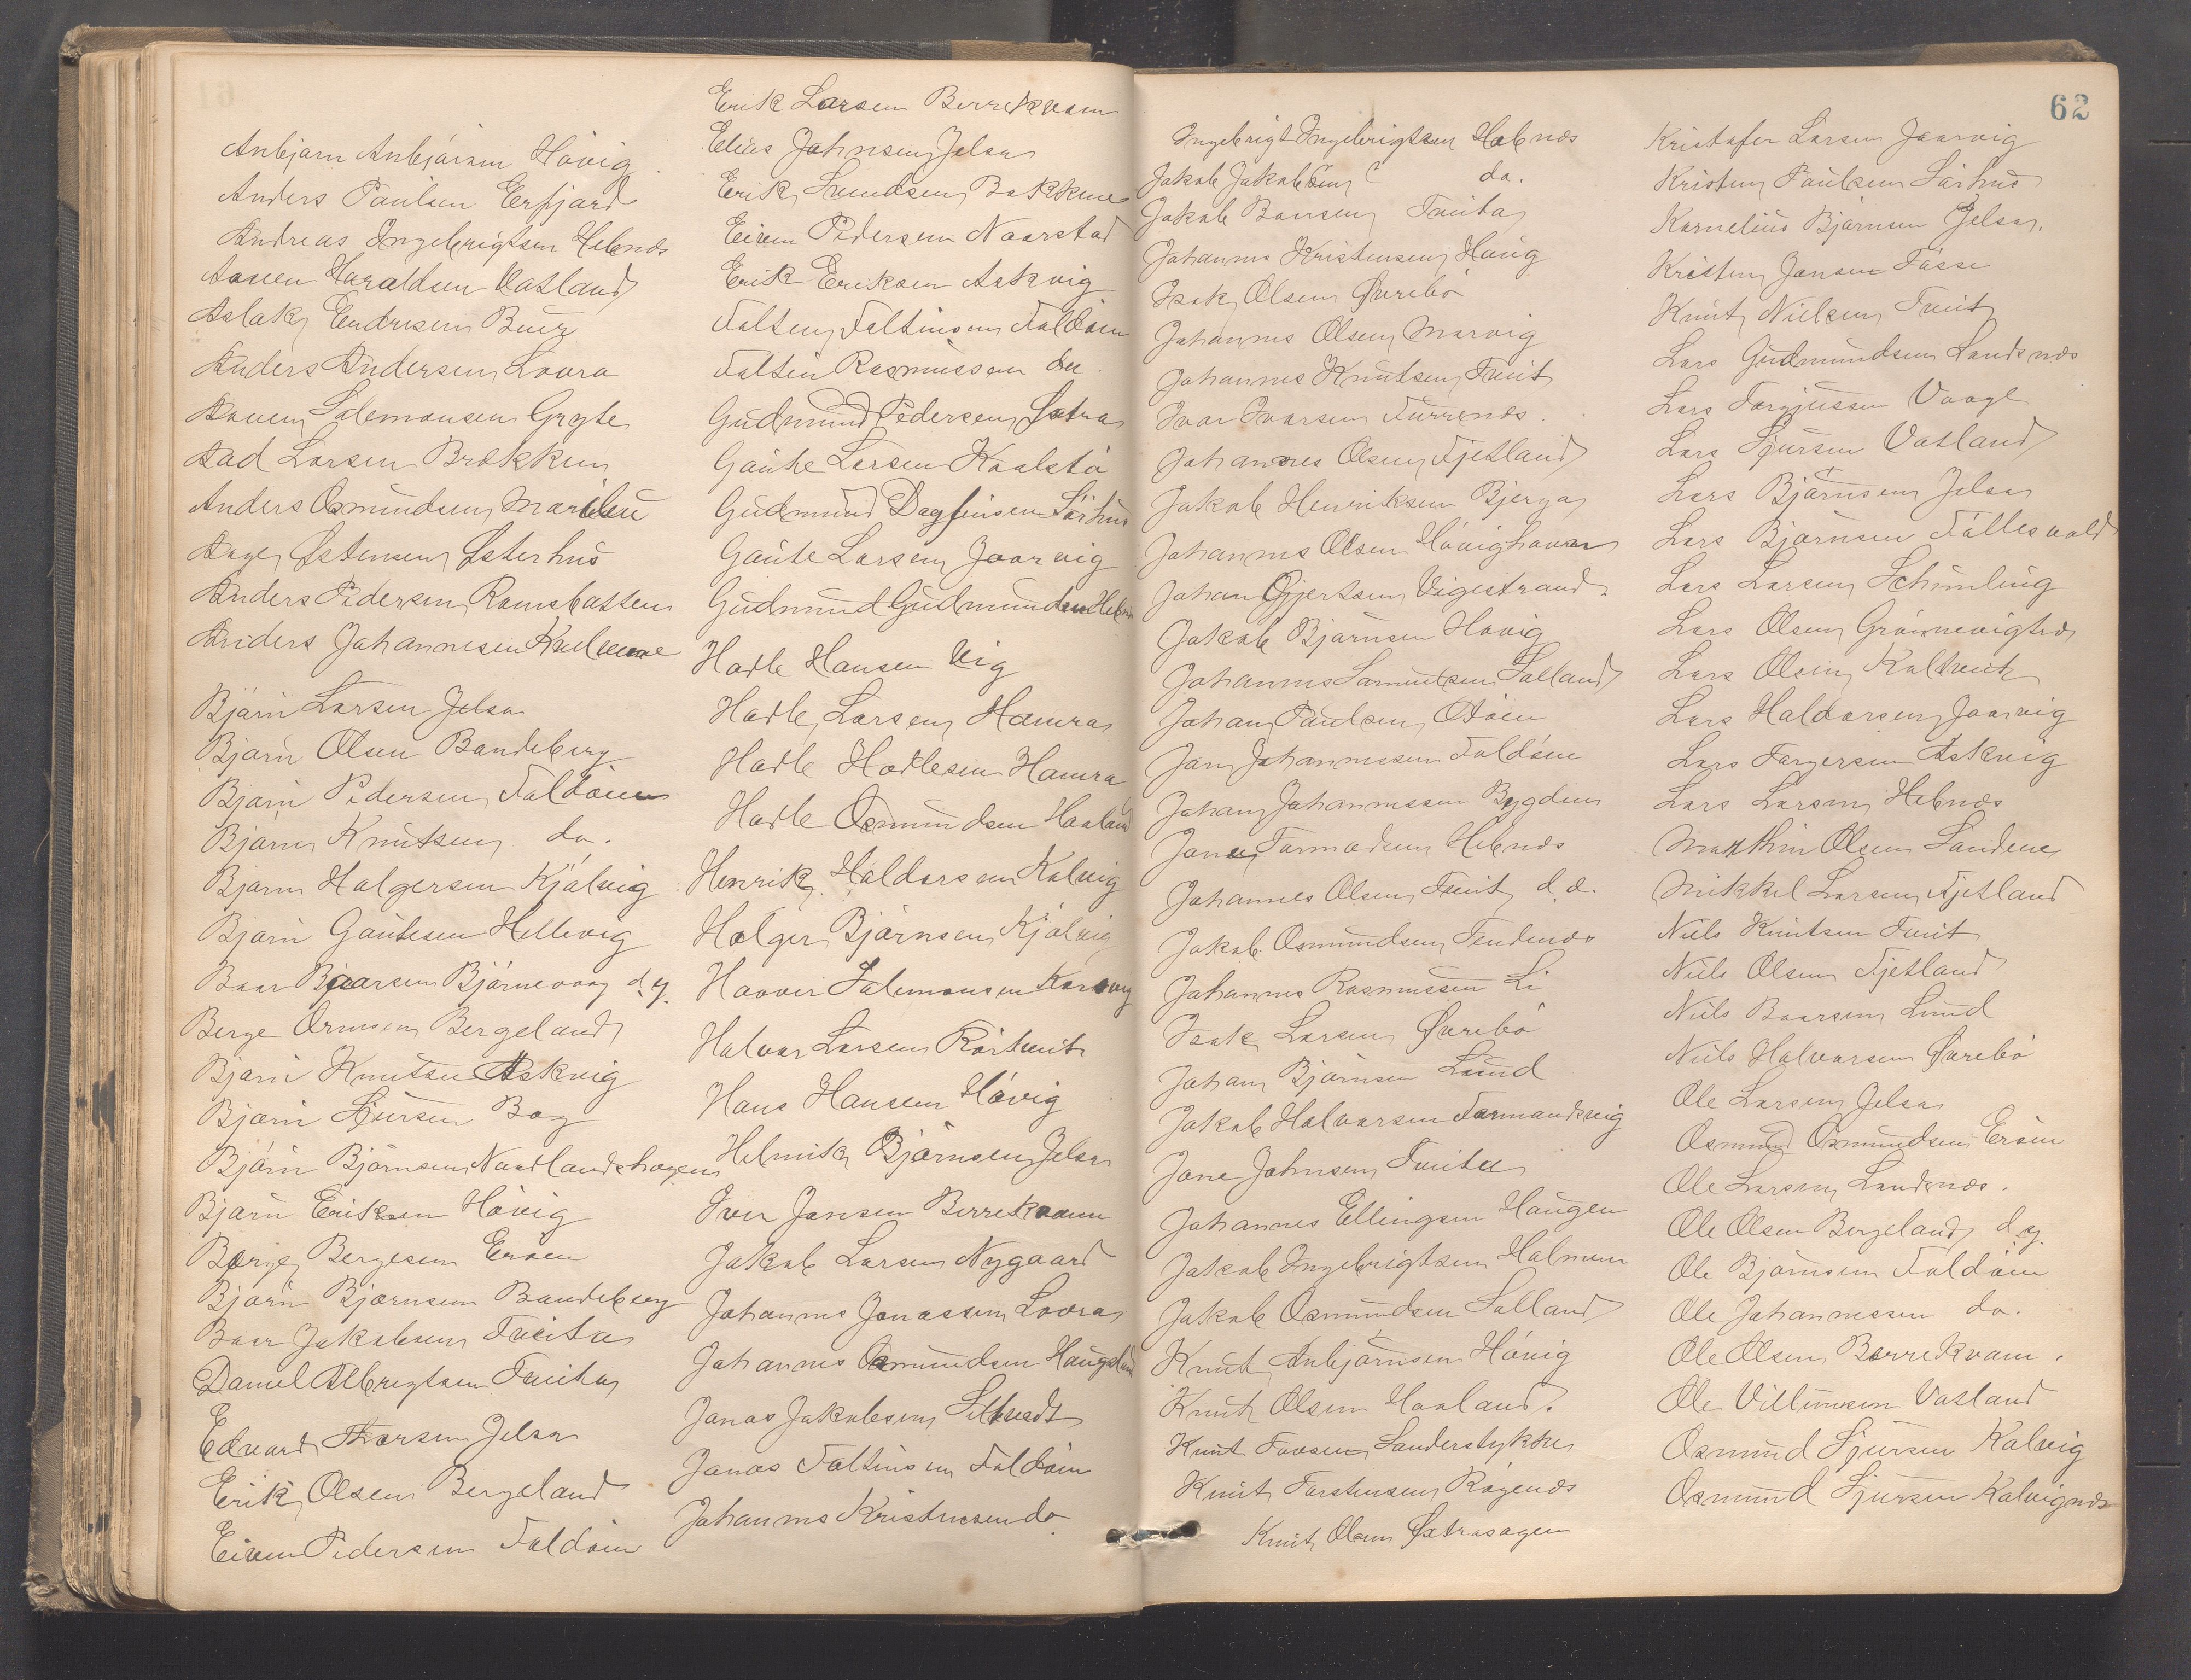 Anbjørn Anbjørnsen Hövig
Anders Paulsen Erfjord
Andreas Ingebrigtsen Hebnæs
Aanen Haraldsen Vatland
Aslak Endresen Buer
Anders Andersen Lovra
Aanen Salemonsen Gryte
Aad Larsen Brækken
Anders Osmundsen
Aage Østensen Østerhus
Anders Pedersen Ramsbatten
Anders Johannesen
Bjørn Larsen Jelsa
Bjørn Olsen Bandeberg
Bjørn Pedersen Foldöien
Bjørn Knutsen do.
Bjørn Halgersen Kjølvig
Bjørn Gautesen Hellevig
Baar Baarsen Bjørnevaag d.y.
Berge Ormsen Bergeland
Bjørn Knutsen Askvig
Bjørn Sjursen Bog
Bjørn Bjørnsen Nordlandshagen
Bjørn Eriksen Hövig
Børge Bergesen Eröen
Bjørn Bjørnsen Bandeberg
Baar Jakobsen Tveita
Daniel Albregtsen Tveita
Edvard Thorsen Jelsa
Erik Olsen Bergeland
Eiven Pedersen Foldöien
Erik Larsen Berrekvam
Elias Johnsen Jelsa
Erik Svendsen Bakkene
Eiven Pedersen Naarstad
Erik Eriksen Askvig
Faltin Faltinsen Foldöien
Faltin Rasmussen do.
Gudmund Pedersen Østraa
Gaute Larsen Kaalstö
Gudmund Dagfinsen Sørhus
Gaute Larsen Jaarvig
Gudmund Gudmundsen Hebnæs
Hadle Hansen Vig
Hadle Larsen Hamra
Hadle Hadlesen Hamra
Hadle Osmundsen Haaland
Henrik Haldorsen Kalvig
Holger Bjørnsen Kjølvig
Haaver Salemonsen
Halvor Larsen Rörtveit
Hans Hansen Hövig
Helmik Bjørnsen Jelsa
Iver Jansen Berrekvam
Jakob Larsen Nygaard
Johannes Jonassen Lovra
Johannes Osmundsen Haugeland
Jonas Jakobsen Seltveit
Jonas Faltinsen Foldöien
Johannes Kristensen do
62
Ingebrigt Ingebrigtsen Hebnæs
Jakob Jakobsen do.
Jakob Baarsen Tveita
Johannes Kristensen Haug
Isak Olsen Øvrebö
Johannes Olsen Marvig
Johannes Knutsen Tveit
Ivar Ivarsen Furrenæs.
Johannes Olsen Fjetland
Jakob Henriksen Bjerga
Johannes Olsen Hövighaven
Johan Gjertsen Vigestrand.
Jakob Bjørnsen Hovig
Johannes Samuelsen Salland
Johan Paulsen Otöen
Jan Johannessen Foldöen
Johan Johannessen Bygden
Jone Tormodsen Hebnæs
Johannes Olsen Tveit d.e.
Jakob Osmundsen Tendenæs
Johannes Rasmussen Li
Isak Larsen Øvrebö
Johan Bjørnsen Lund
Jakob Halvorsen Formandsvig
Jone Johnsen Tveita
Johannes Ellingsen Haugen
Jakob Ingebrigtsen Holmen
Jakob Osmundsen Salland
Knut Anbjørnsen Hövig
Knut Olsen Haaland.
Knut Tovsen Sanderstykke
Knut Torstensen Røgenæs
Knut Olsen Østrasagen
Kristofer Larsen Jaarvig
Kristen Paulsen Sørhus
Kornelius Bjørnsen Jelsa.
Kristen Jansen Fosse
Knut Nielsen Tveit
Lars Gudmundsen Landsnæs
Lars Torgjussen Vaage
Lars Sjursen Vatland
Lars Bjørnsen Jelsa
Lars Bjørnsen Føllesvold
Lars Larsen Schimling
Lars Olsen
Lars Olsen Kaltveit
Lars Haldorsen Jaarvig
Lars Torgersen Askvig
Lars Larsen Hebnæs
Matthis Olsen Sandene
Mikkel Larsen Fjetland
Niels Knutsen Tveit
Niels Olsen Fjetland
Niels Baarsen Lund
Niels Halvorsen Øvrebö
Ole Larsen Jelsa
Osmund Osmundsen Eröen
Ole Larsen Landsnæs.
Ole Olsen Bergeland d.y.
Ole Bjørnsen Foldöien
Ole Johannessen do.
Ole Olsen Børrekvam.
Ole Villumsen Vatland
Osmund Sjursen Kalvig
Osmund Sjursen Kalvignæs